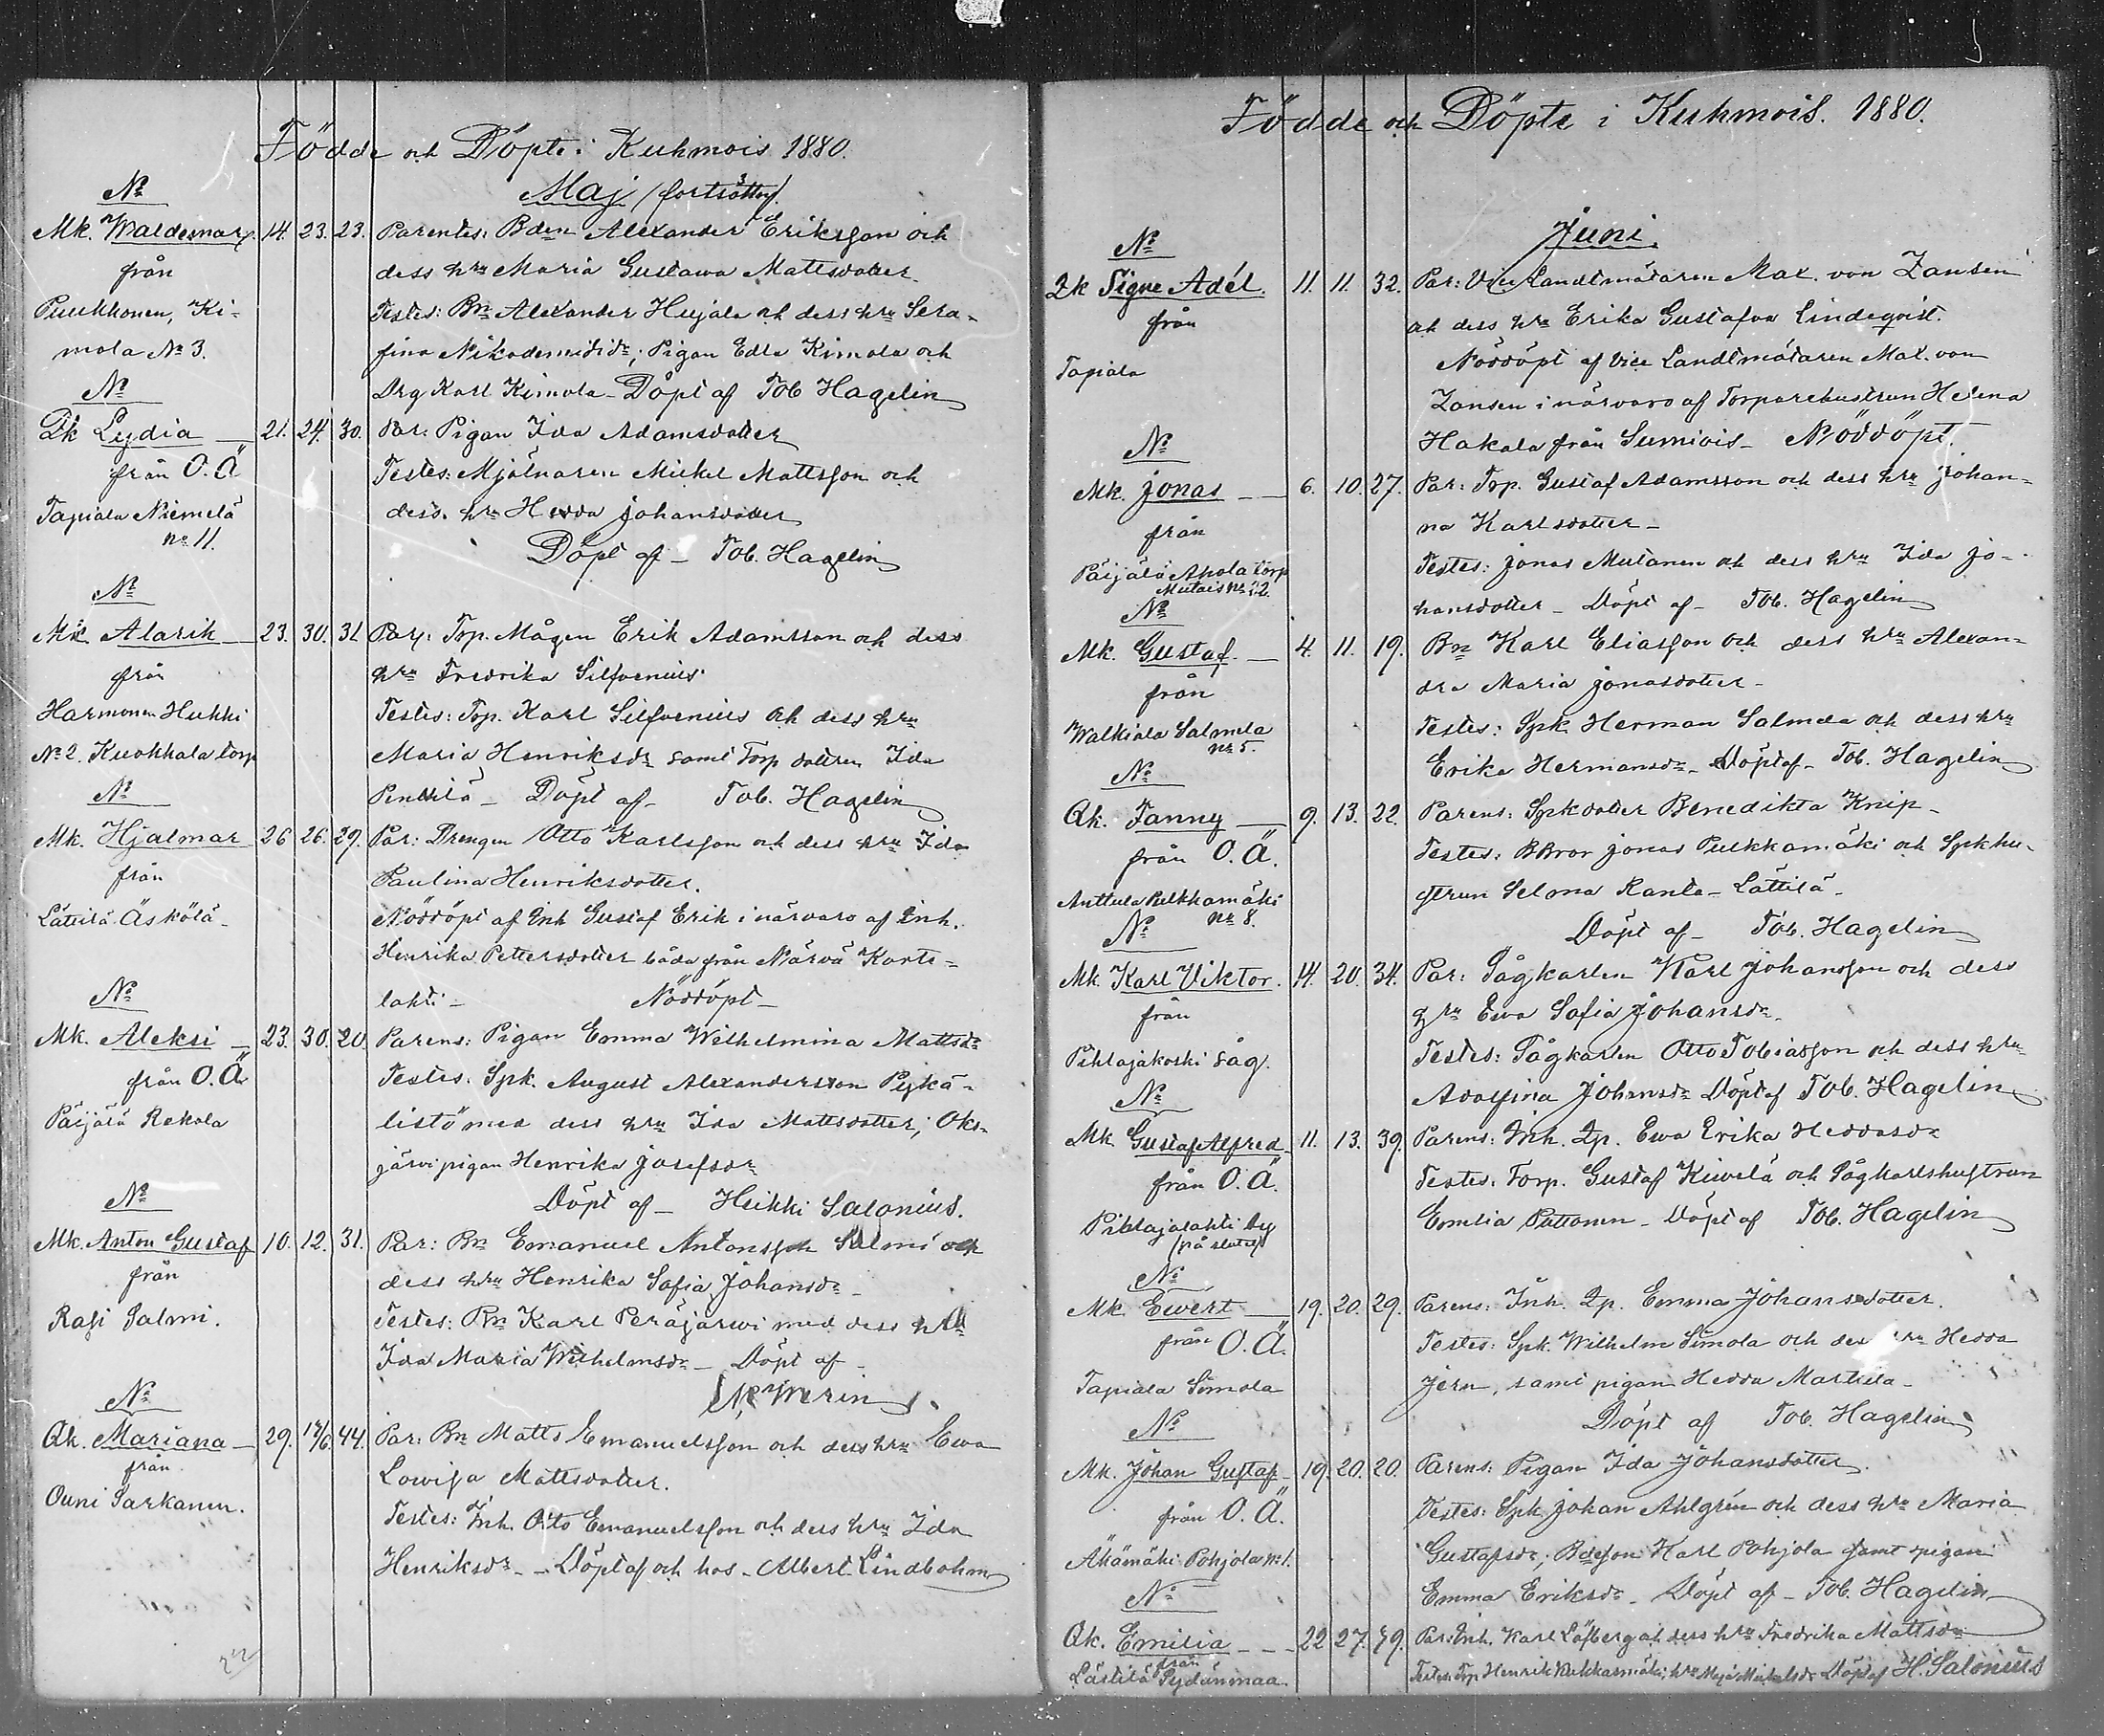 Födde och Döpte i Kuhmois 1880.
Maj (fortsättn).
No
Mk. Waldemar 14. 23. 23. Parentes: Bdrn Alexander Eriksson och
från dess hru Maria Gustawa Mattsdotter
Puukkonen, Ki- Testes: Bn Alexander Hujala och dess hru Sera-
mola No 3. fina Nikodemidr; Pigan Edla Kimola och
No Drg Karl Kimola - Döpt af Tob Hagelin
Qk Lydia 21. 24. 30. Par: Pigan Ida Adamsdotter
från O.Ä Testes: Mjölnaren Mickel Mattsson och
Tapiala Niemelä dess hru Hedda Johansdotter
no 11. Döpt af - Tob. Hagelin
No
Mk Alarik 23. 30. 31 Par: Torp. Mågen Erik Adamsson och dess
från hru Fredrika Silfvenius
Harmonen Hukki Testes: Torp. Karl Silfvenius och dess hru
No 2. Kuokkala torp Maria Henriksdr samt Torp dottren Ida
No Penttilä - Döpt af - Tob. Hagelin
Mk. Hjalmar 26 26. 29. Par: Drengen Otto Karlsson och dess hru Ida
från Paulina Henriksdotter.
Lättilä Äskölä - Nöddöpt af Inh Gustaf Erik i närvaro af Inh.
Henrika Pettersdotter båda från Närvä Korte-
No lahti - Nöddöpt -
Mk. Aleksi 23. 30. 20. Parens: Pigan Emma Wilhelmina Mattsdr
från O.Ä Testes. Spk. August Alexandersson Pykä-
Päijälä Rekola listö med dess hru Ida Mattsdotter; Oks-
järvi pigan Henrika Josefsdr
No Döpt af - Heikki Salonius.
Mk. Anton Gustaf 10. 12. 31. Par: Bn Emanuel Antonsson Salmi och
från dess hru Henrika Sofia Johansdr -
Rasi Salmi. Testes: Bn Karl Peräjärwi med dess hru
Ida Maria Wilhelmsdr - Döpt af -
No
Qk. Mariana 29. 44. Par: Bn Matts Emanuelsson och dess hru Ewa
från Lowisa Mattsdotter.
Ouni Sarkanen. Testes: Inh. Otto Emanuelsson och dess hru Ida
Henriksdr. - Döpt af och hos - Albert Lindbohm
Födde och Döpte i Kuhmois. 1880.
Juni.
No
Qk Signe Adél. 11. 11. 32. Par: Vice Landtmätaren Max. von Zansen
från och dess hru Erika Gustafva Lindeqvist.
Tapiala Nöddöpt af Vice Landtmätaren Max. von
Zansen i närvaro af Torparehustrun Helena
No Hakala från Sumiois - Nöddöpt.
Mk. Jonas 6. 10. 27. Par: Torp. Gustaf Adamsson och dess hru Johan-
från na Karlsdotter -
Päijälä Ahola torp Testes: Jonas Mutanen och dess hru Ida Jo-
No hansdotter - Döpt af - Tob. Hagelin
Mk. Gustaf. 4. 11. 19. Bn Karl Eliasson och dess hru Alexan-
från dra Maria Jonasdotter -
Walkiala Salmela Testes: Spk Herman Salmela och dess hru
no 5.
No Erika Hermansdr - Döpt af - Tob. Hagelin
Qk. Fanny 9. 13. 22. Parens: Spkdotter Benedikta Knip -
från O.Ä. Testes: BBror Jonas Pulkkamäki och Spkhu-
Anttula Pulkkamäki strun Selma Ranta - Lättilä -
No no 8. Döpt af - Tob. Hagelin
Mk. Karl Viktor. 14. 20. 34. Par: Sågkarlen Karl Johansson och dess
från hru Ewa Sofia Johansdr -
Pihlajakoski såg. Testes: Sågkarlen Otto Tobiasson och dess hru
No Adolfina Johansdr Döpt af Tob. Hagelin
Mk. Gustaf Alfred 11. 13. 39. Parens: Inh. Qp. Ewa Erika Heddasdr
från O.Ä. Testes. Torp. Gustaf Kiwelä och Sågkarlshustrun
Pihlajalahti by Emilia Puttonen - Döpt af Tob. Hagelin
No
Mk. Ewert 19. 20. 29. Parens: Inh. Qp. Emma Johansdotter.
från O.Ä. Testes: Spk. Wilhelm Simola och dess hru Hedda
Tapiala Simola Jern, samt pigan Hedda Mattila -
No Döpt af Tob. Hagelin
Mk. Johan Gustaf 19. 20. 20. Parens: Pigan Ida Johansdotter.
från O.Ä. Testes: Spk Johan Ahlgrén och dess hru Maria
Äkämäki Pohjola no 1. Gustafsdr, Bdeson Karl Pohjola samt pigan
No Emma Eriksdr - Döpt af - Tob. Hagelin
Qk. Emilia 22 27. 39. Par: Inh. Karl Löfberg och dess hru Fredrika Mattsdr
från
Lästilä Sydänmaa. Testes: Torp Henrik Pulkkamäki, hru Maja Mickelsdr Döpt af H. Salonius